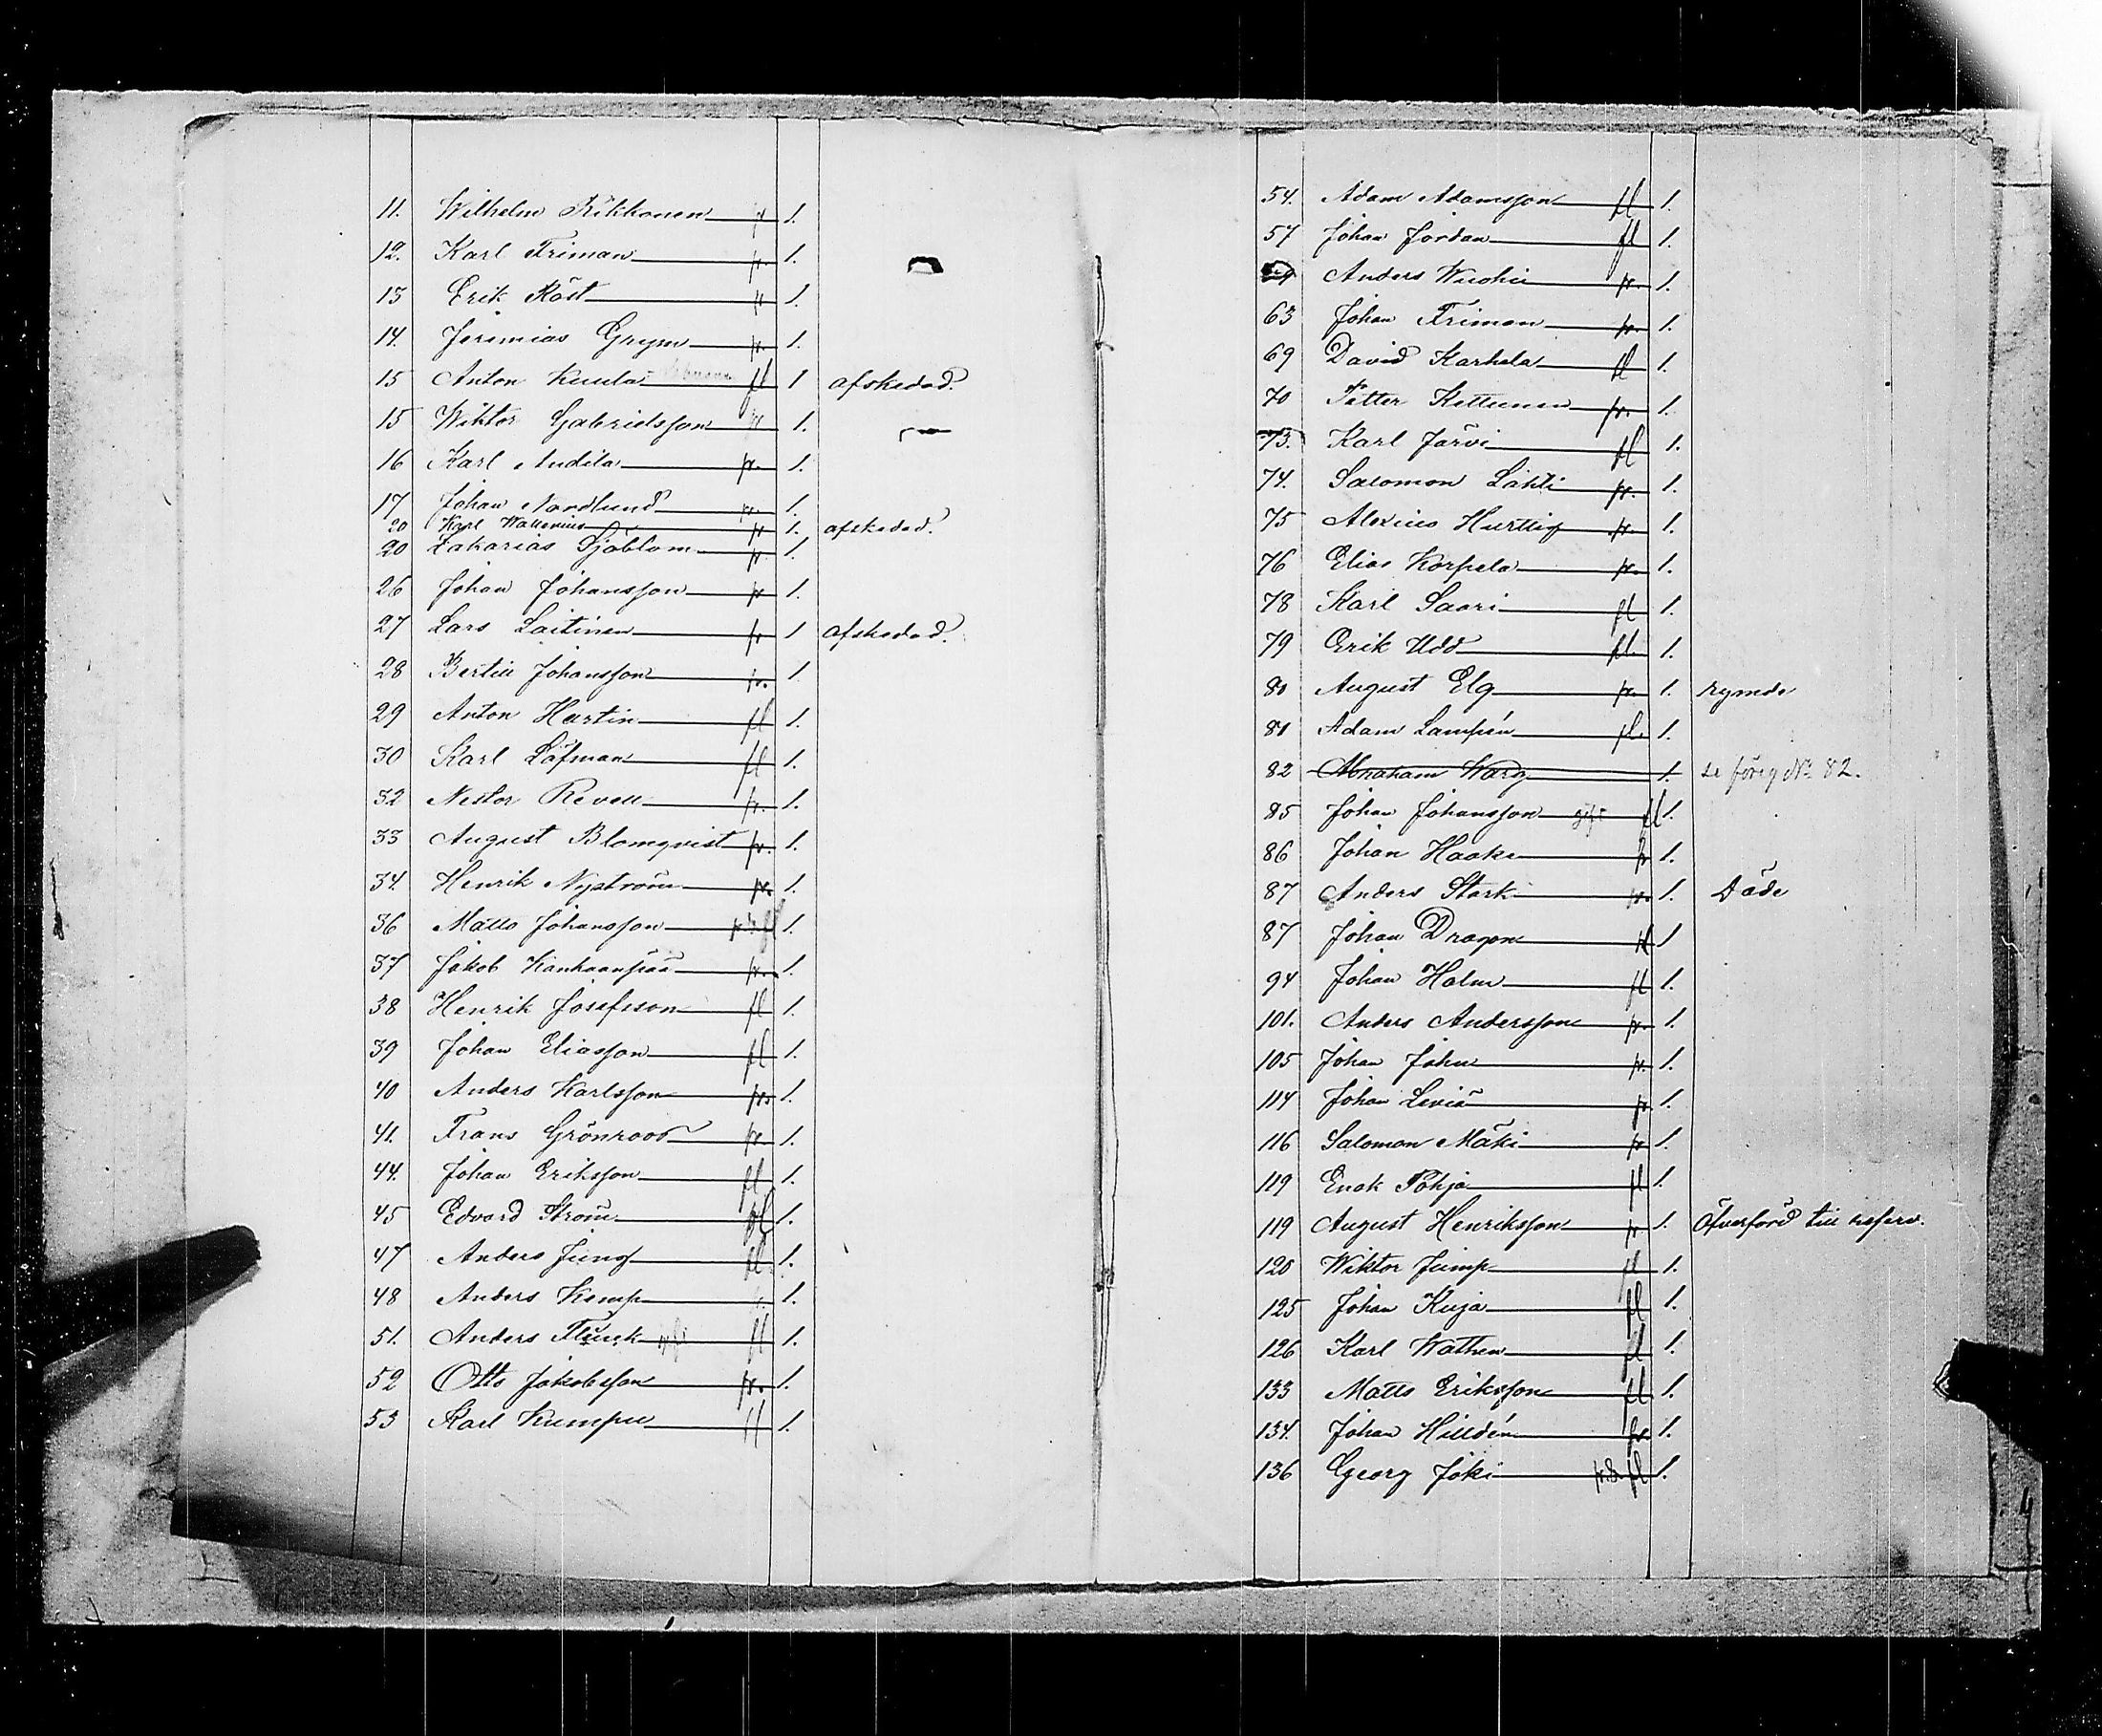 11. Wilhelm Rikkonen pr 1.
12. Karl Friman pr. 1.
13 Erik Röst pr 1.
14. Jeremias Grym pr. 1.
15 Anton Kuula fl 1 afskedad.
15 Wiktor Gabrielsson 1.
16 Karl Andila pr. 1.
17 Johan Nordlund pr. 1.
20 Karl Wallenius pr 1. afskedad.
20 Zakarias Sjöblom pr. 1.
26 Johan Johansson pr 1.
27 Lars Laitinen pr 1 afskedad.
28 Bertill Johansson pr. 1.
29 Anton Hartin fl 1.
30 Karl Löfman fl 1.
32 Nestor Revell pr. 1.
33 August Blomqvist pr. 1.
34. Henrik Nyström pr. 1.
36 Matts Johansson fl 1.
37 Jakob Kankaanpää pr. 1.
38 Henrik Josefsson fl 1.
39 Johan Eliasson fl 1.
40 Anders Karlsson pr. 1.
41. Frans Grönroos pr 1.
44. Johan Eriksson fl 1.
45 Edvard Ström fl 1.
47 Anders Jung fl 1.
48 Anders Kemp 1.
51. Anders Flinck fl 1.
52 Otto Jakobsson pr. 1.
53 Karl Kumpu fl 1.
54. Adam Adamsson fl 1.
57 Johan Jordan fl 1.
Anders Wuohu pr. 1.
63 Johan Friman pr. 1.
69 David Karhela fl 1.
70 Petter Kettunen pr. 1.
73. Karl Järvi fl 1.
74. Salomon Lahti pr. 1.
75 Alexius Hurttig pr. 1.
76 Elias Korpela pr. 1.
78 Karl Saari fl 1.
79 Erik Udd fl. 1.
80 August Elg pr. 1. rymde
81 Adam Lampén fl. 1.
82 Abraham Warg 1. se föreg No 82.
85 Johan Johansson gift fl 1.
86 Johan Haake pr 1.
87 Anders Stark pr. 1. Döde
87 Johan Dragon fl 1
94 Johan Holm fl 1.
101. Anders Andersson pr. 1.
105 Johan John pr. 1.
114 Johan Leviä pr 1.
116 Salomon Mäki pr 1.
119 Enok Pohja fl 1.
119 August Henriksson pr. 1. Öfverförd till reserv.
120 Wiktor Jump fl 1.
125 Johan Kuja fl 1.
126 Karl Wathen fl 1.
133 Matts Eriksson fl 1.
134. Johan Hilldén pr. 1.
136 Georg Joki pr.8. fl 1.